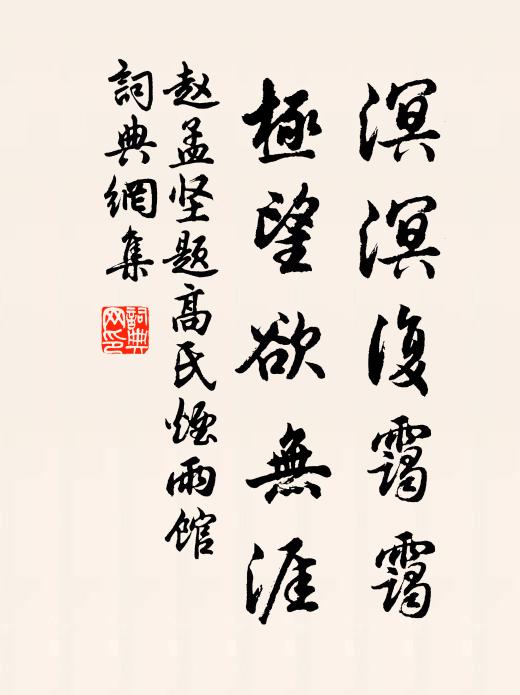 溟溟復靄靄
極望欲無涯
赵孟坚题高氏烟雨馆
詞典網集
詞典网印